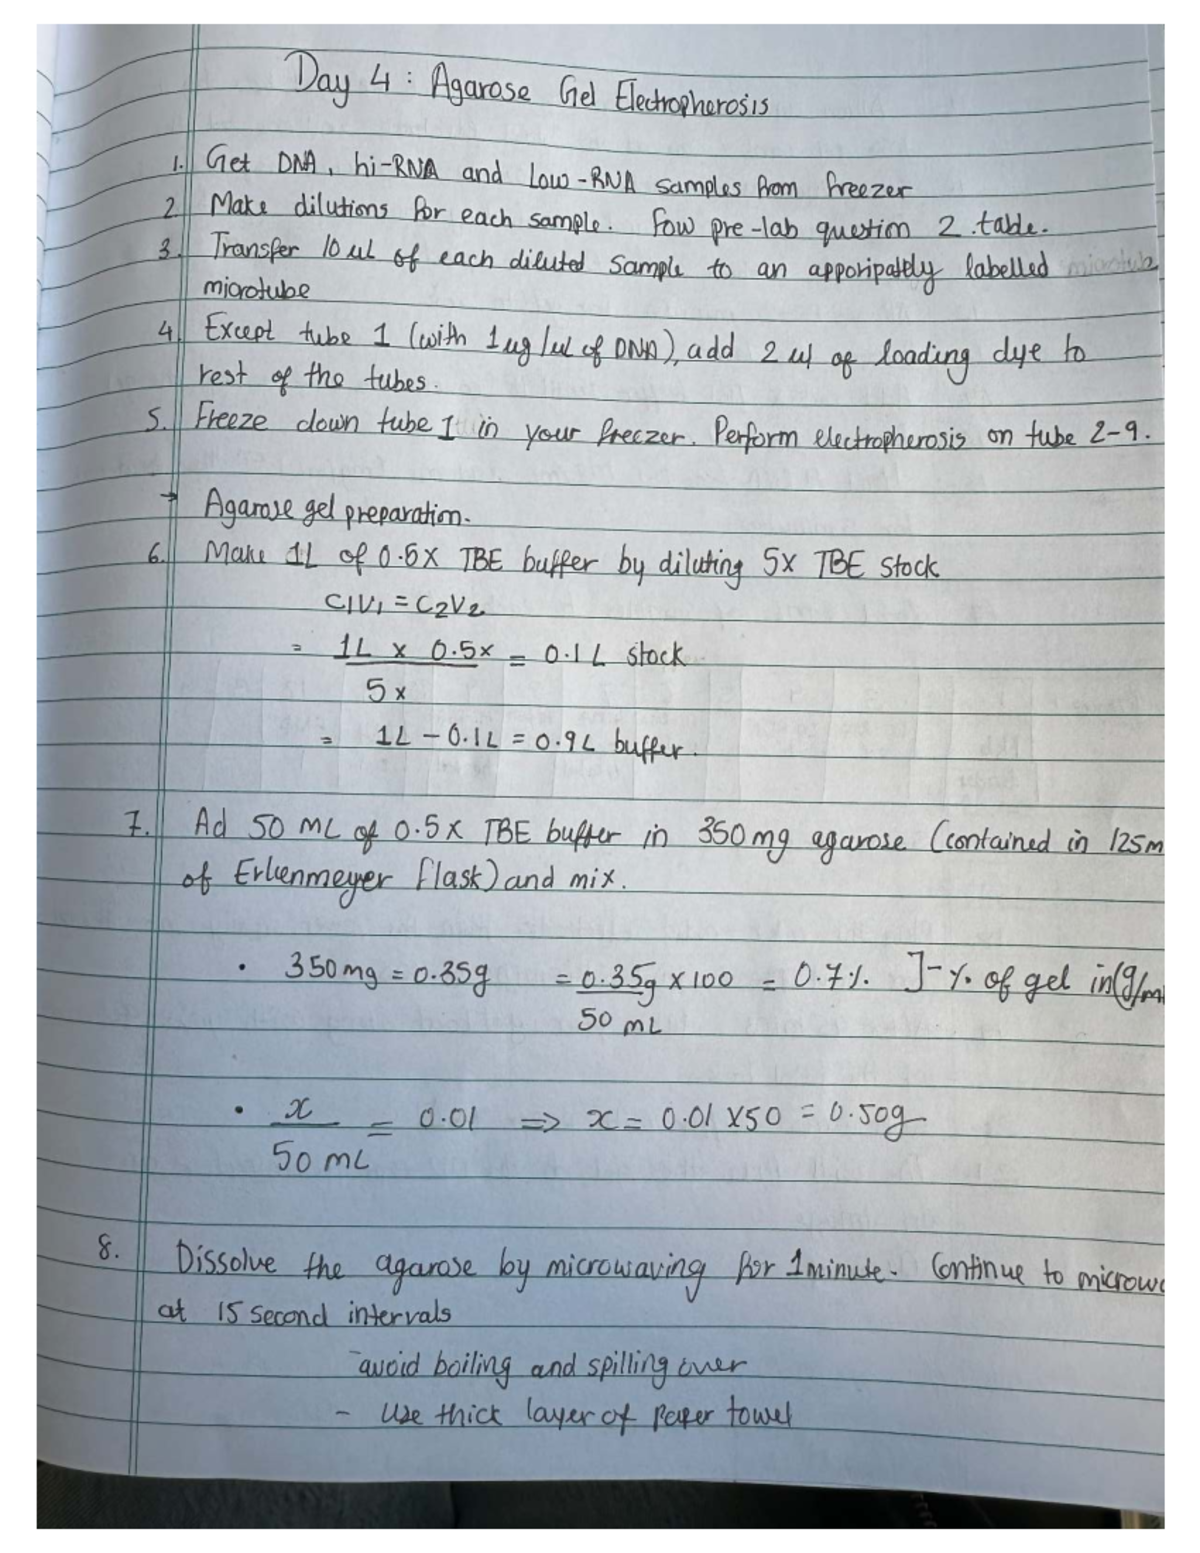 Day 4 : Agarose Gel Electropherosis
1. Get DNA, hi-RNA and Low-RNA samples from freezer
2 Make dilutions for each sample. Fow pre-lab question 2 table.
3. Transfer 10 ul of each diluted sample to an apporipately labelled
microtube
4. Except tube 1 (with 1ug/ul of DNA), add 2 ul of loading dye to
rest of the tubes.
5. Freeze down tube 1 in your freezer. Perform electropherosis on tube 2-9.
→ Agarose gel preparation.
6. Make 1L of 0.5X TBE buffer by diluting 5X TBE stock
C1V1 = C2V2
= 1L x 0.5x = 0.1L stock
5x
= 1L - 0.1L = 0.9L buffer.
7. Ad 50 mL of 0.5X TBE buffer in 350mg agarose (contained in 125m
of Erlenmeyer flask) and mix.
• 350mg = 0.35g = 0.35g x 100 = 0.7%. ]- % of gel in (g/ml
50 mL
• x = 0.01 => x = 0.01 X50 = 0.50g
50 mL
8. Dissolve the agarose by microwaving for 1minute. Continue to microwa
at 15 second intervals
- avoid boiling and spilling over
- Use thick layer of paper towel